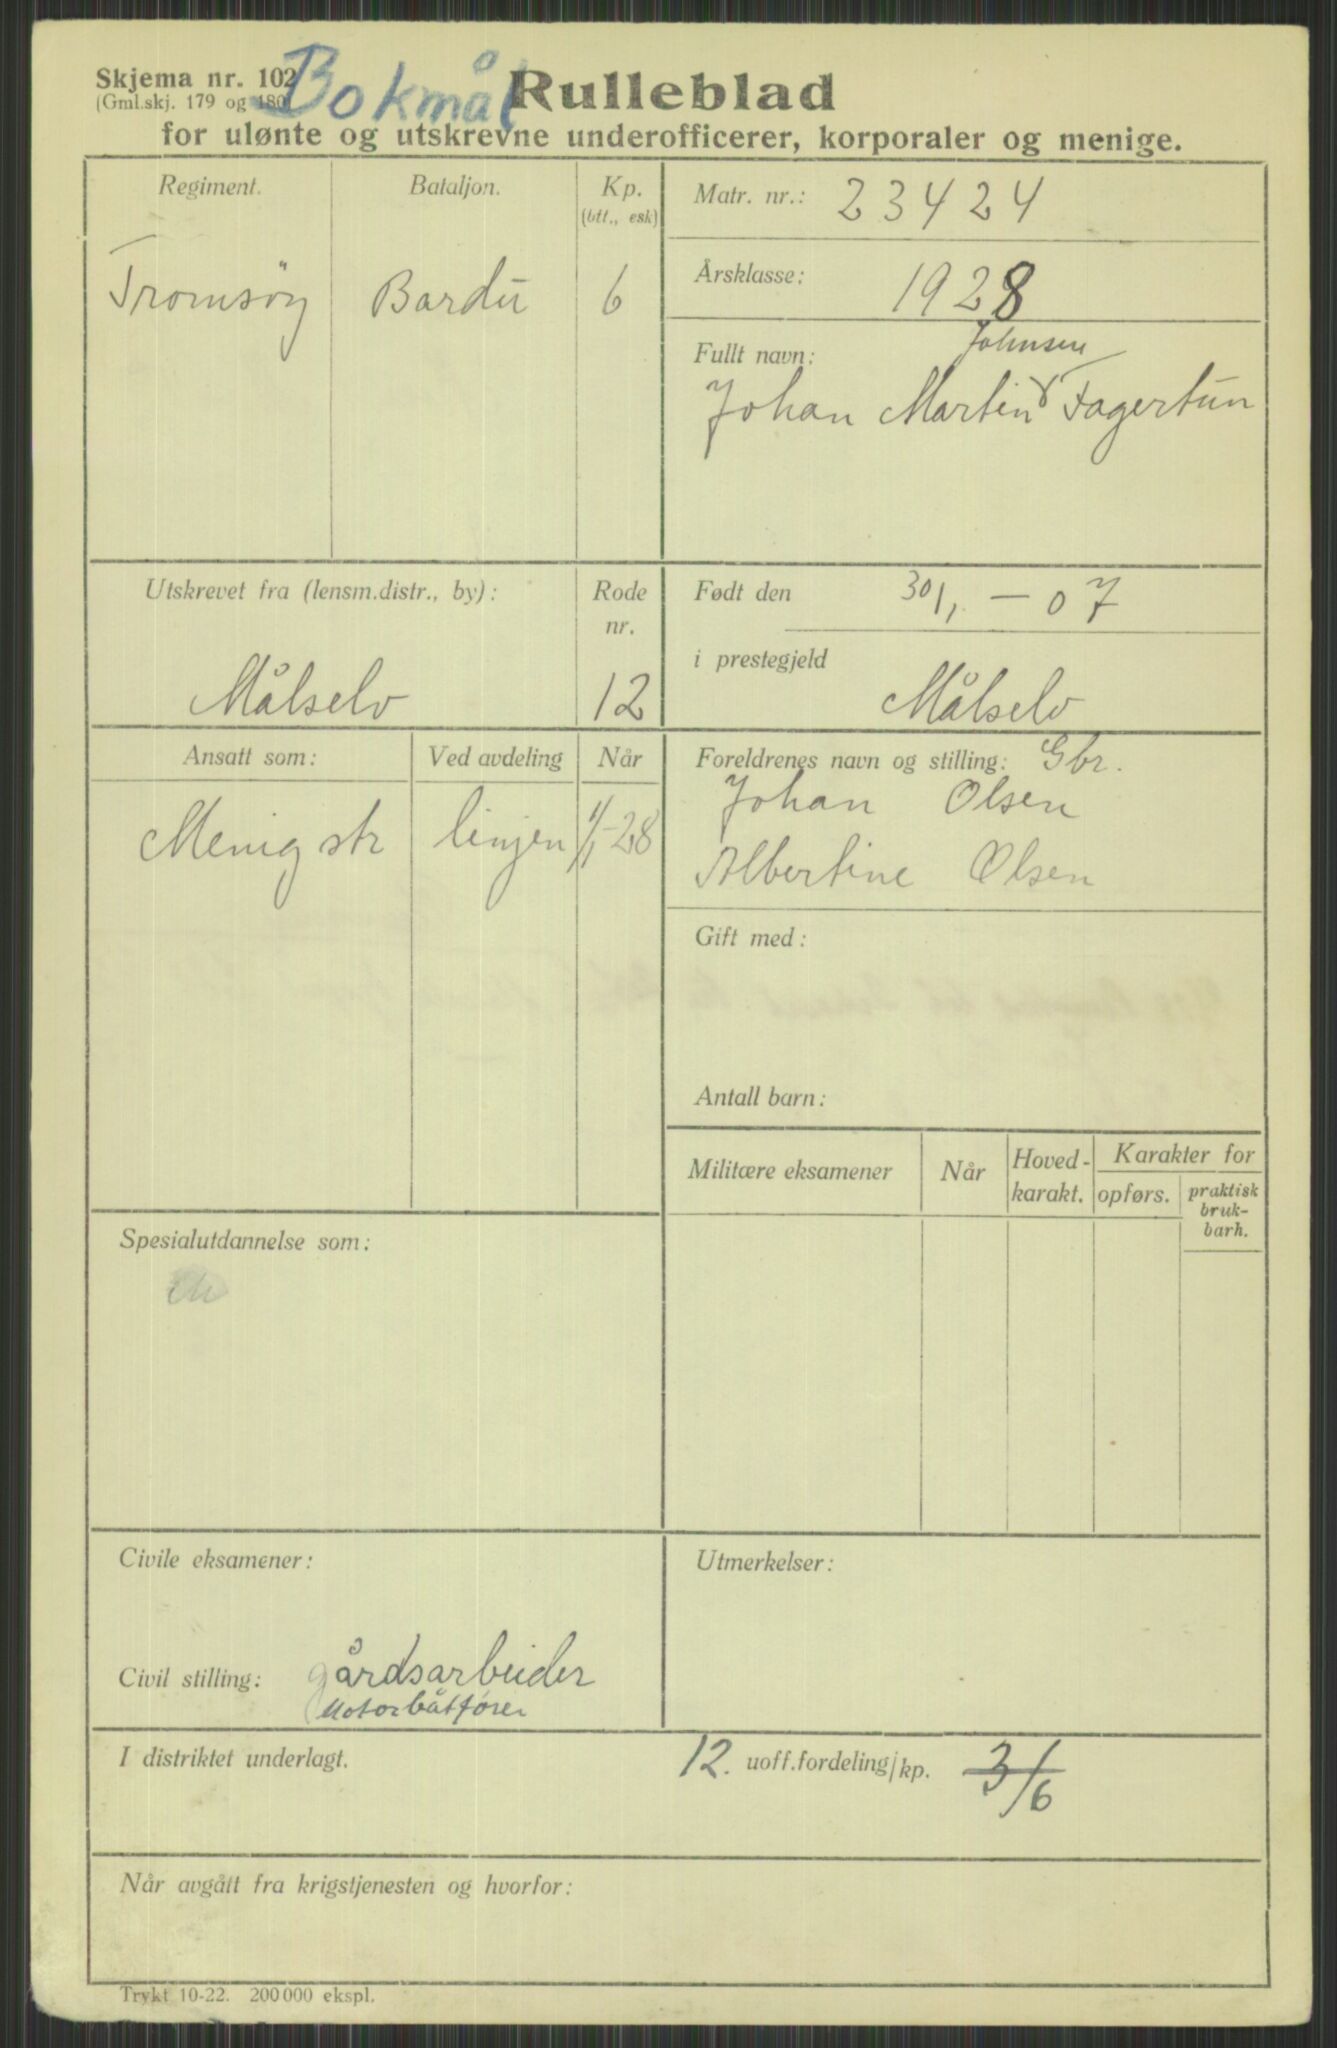 Skjema nr. 102
(Gml.skj. 179 og 180)
Bokmål
Rulleblad
for ulønte og utskrevne underofficerer, korporaler og menige.
Regiment. Bataljon. Kp.
(btt., esk)
Tromsöy Bardu 6
Matr. nr.: 23424
Årsklasse: 1928
Fullt navn: Johnsen
Johan Martin Fagertun
Utskrevet fra (lensm.distr., by): Rode
nr.
Målselv 12
Født den 30/1 — 07
i prestegjeld
Målselv
Ansatt som: Ved avdeling Når
Menig str linjen 1/1-28
Foreldrenes navn og stilling: Gbr.
Johan Olsen
Albertine Olsen
Gift med:
Antall barn:
Militære eksamener Når Hoved-
karakt. Karakter for
opførs. praktisk
bruk-
barh.
Spesialutdannelse som:
Civile eksamener:
Utmerkelser:
Civil stilling: gårdsarbeider
Motorbåtfører
I distriktet underlagt. 12. uoff.fordeling/kp. 3/6
Når avgått fra krigstjenesten og hvorfor:
Trykt 10-22. 200 000 ekspl.